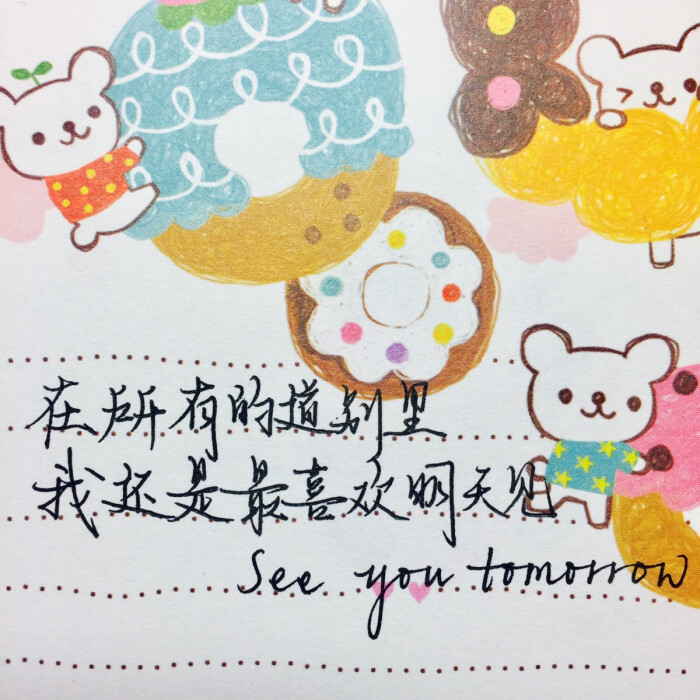 在所有的道别里
我还是最喜欢明天见
See you tomorrow